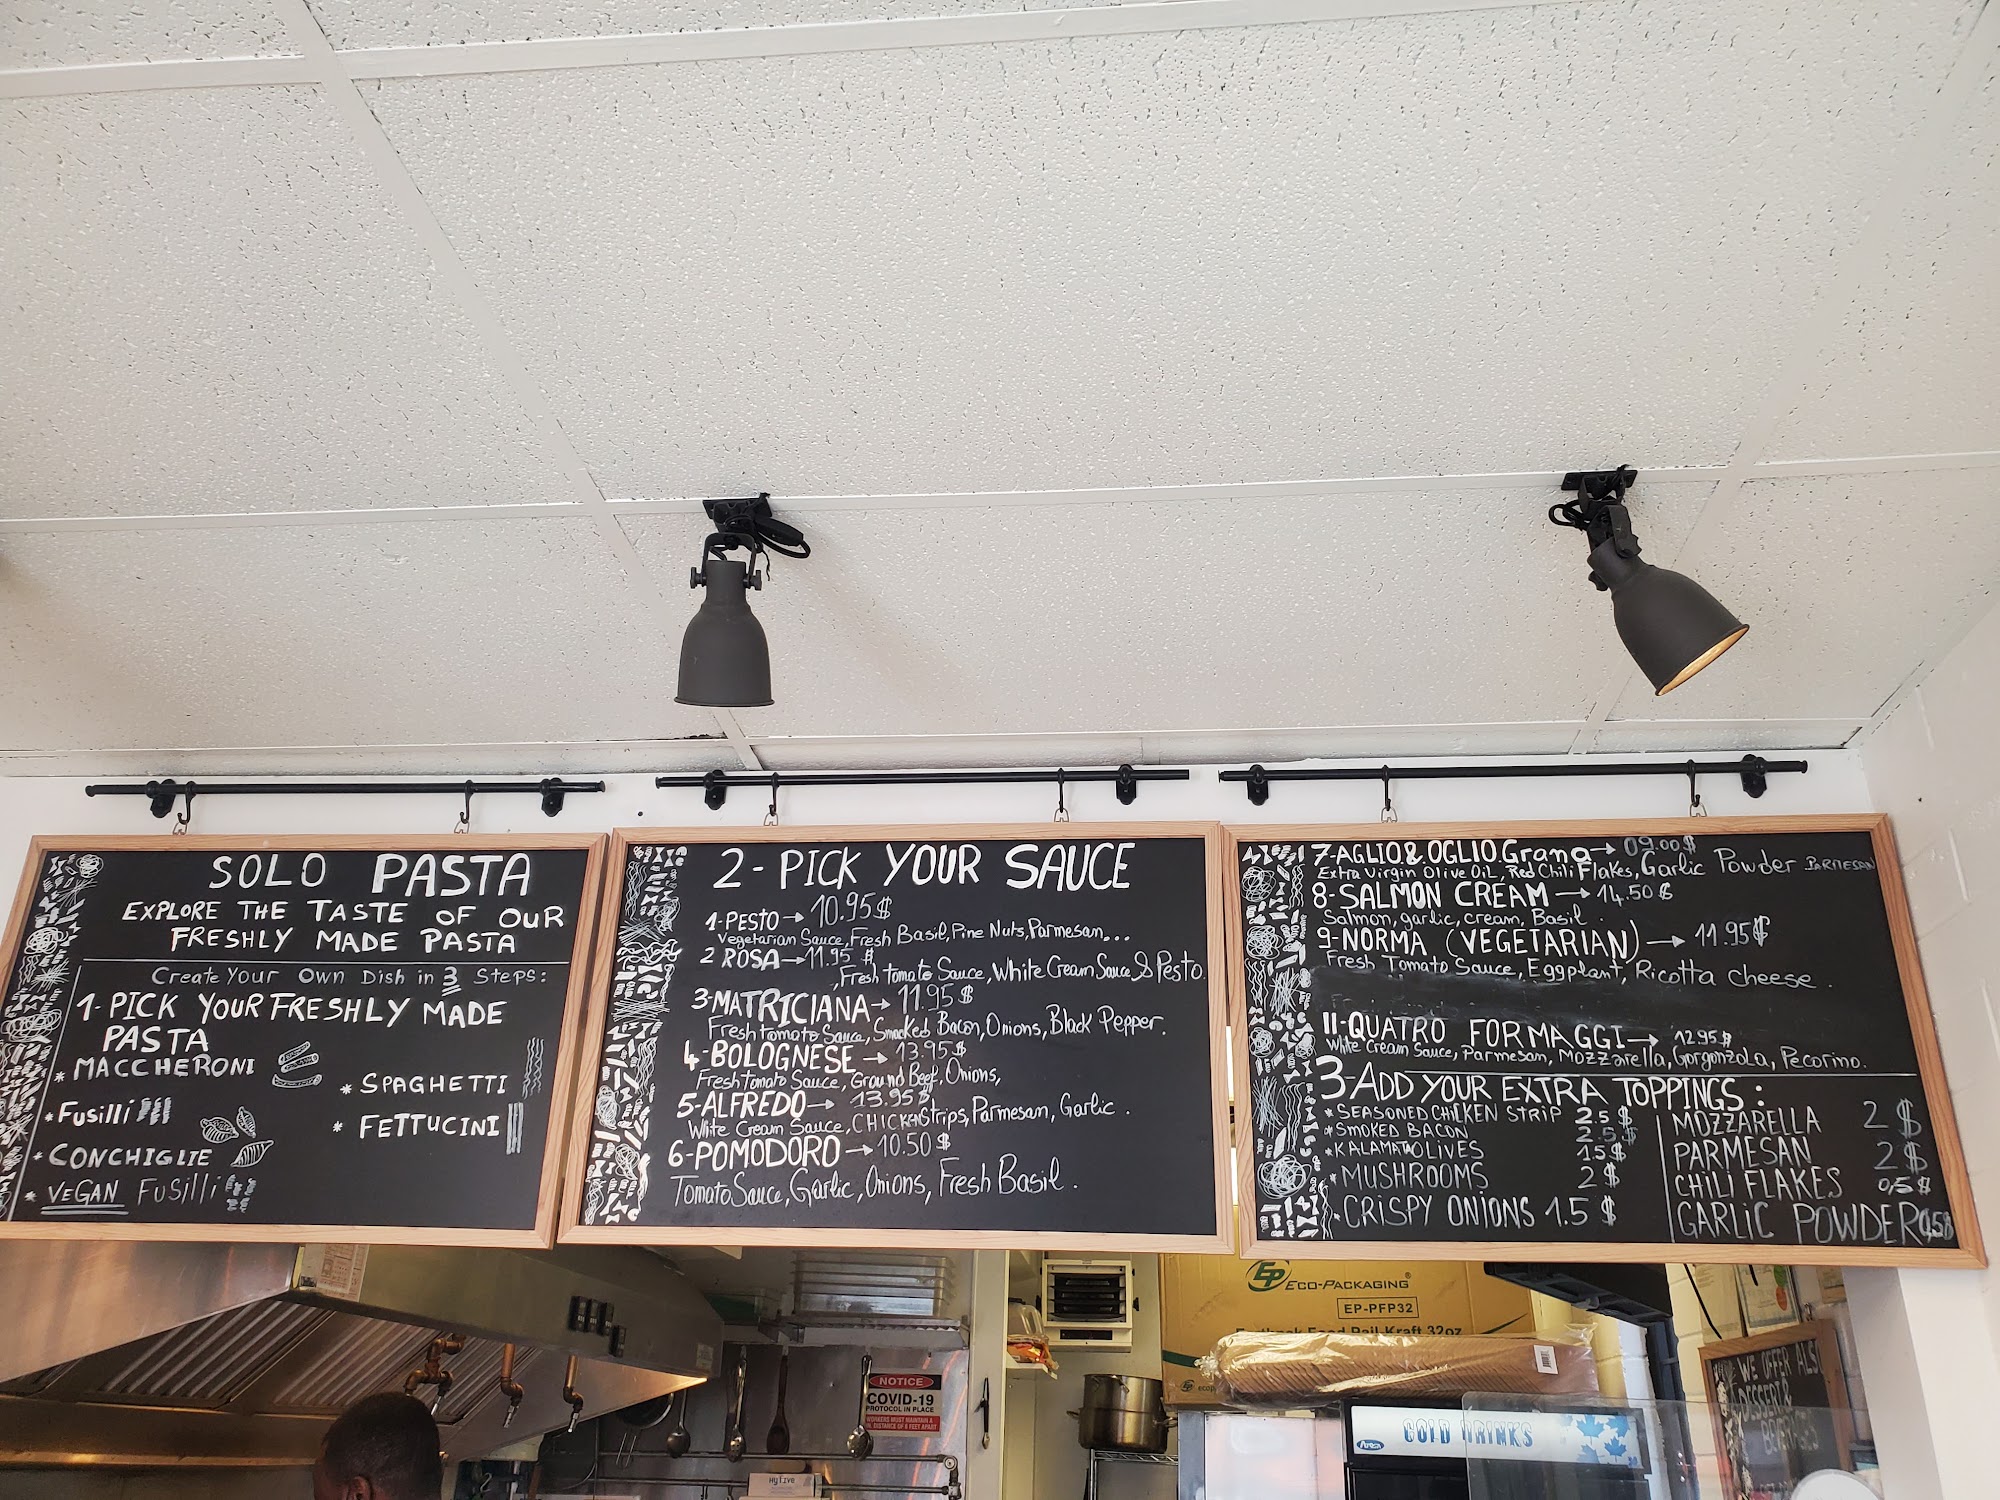 SOLO PASTA
EXPLORE THE TASTE OF OUR
FRESHLY MADE PASTA
Create Your Own Dish in 3 Steps:
1-PICK YOUR FRESHLY MADE
PASTA
* MACCHERONI
* Fusilli
* CONCHIGLIE
* VEGAN Fusilli
* SPAGHETTI
* FETTUCINI
2-PICK YOUR SAUCE
1-PESTO → 10.95$
Vegetarian Sauce, Fresh Basil, Pine Nuts, Parmesan,...
2 ROSA → 11.95 $
, Fresh tomato Sauce, White Cream Sauce & Pesto.
3-MATRICIANA → 11.95 $
Fresh tomato Sauce, Smocked Bacon, Onions, Black Pepper.
4-BOLOGNESE → 13.95$
Fresh Tomato Sauce, Ground Beef, Onions,
5-ALFREDO → 13.95$
White Cream Sauce, CHICKEN Strips, Parmesan, Garlic.
6-POMODORO → 10.50 $
Tomato Sauce, Garlic, Onions, Fresh Basil.
7-AGLIO & OGLIO Grano → 09.00$
Extra Virgin Olive Oil, Red Chili Flakes, Garlic Powder PARMESAN
8-SALMON CREAM → 14.50 $
Salmon, garlic, cream, Basil.
9-NORMA (VEGETARIAN) → 11.95$
Fresh Tomato Sauce, Eggplant, Ricotta cheese.
11-QUATRO FORMAGGI → 12.95$
White Cream Sauce, Parmesan, Mozzarella, Gorgonzola, Pecorino.
3-ADD YOUR EXTRA TOPPINGS:
* SEASONED CHICKEN STRIP 2.5 $
* SMOKED BACON 2.5 $
* KALAMATA OLIVES 1.5 $
* MUSHROOMS 2 $
* CRISPY ONIONS 1.5 $
MOZZARELLA 2 $
PARMESAN 2 $
CHILI FLAKES 0,5 $
GARLIC POWDER 0,5$
EP ECO-PACKAGING®
EP-PFP32
NOTICE
COVID-19
PROTOCOL IN PLACE
WORKERS MUST MAINTAIN A
DISTANCE OF 6 FEET APART
COLD DRINKS
WE OFFER ALS
DESSERT &